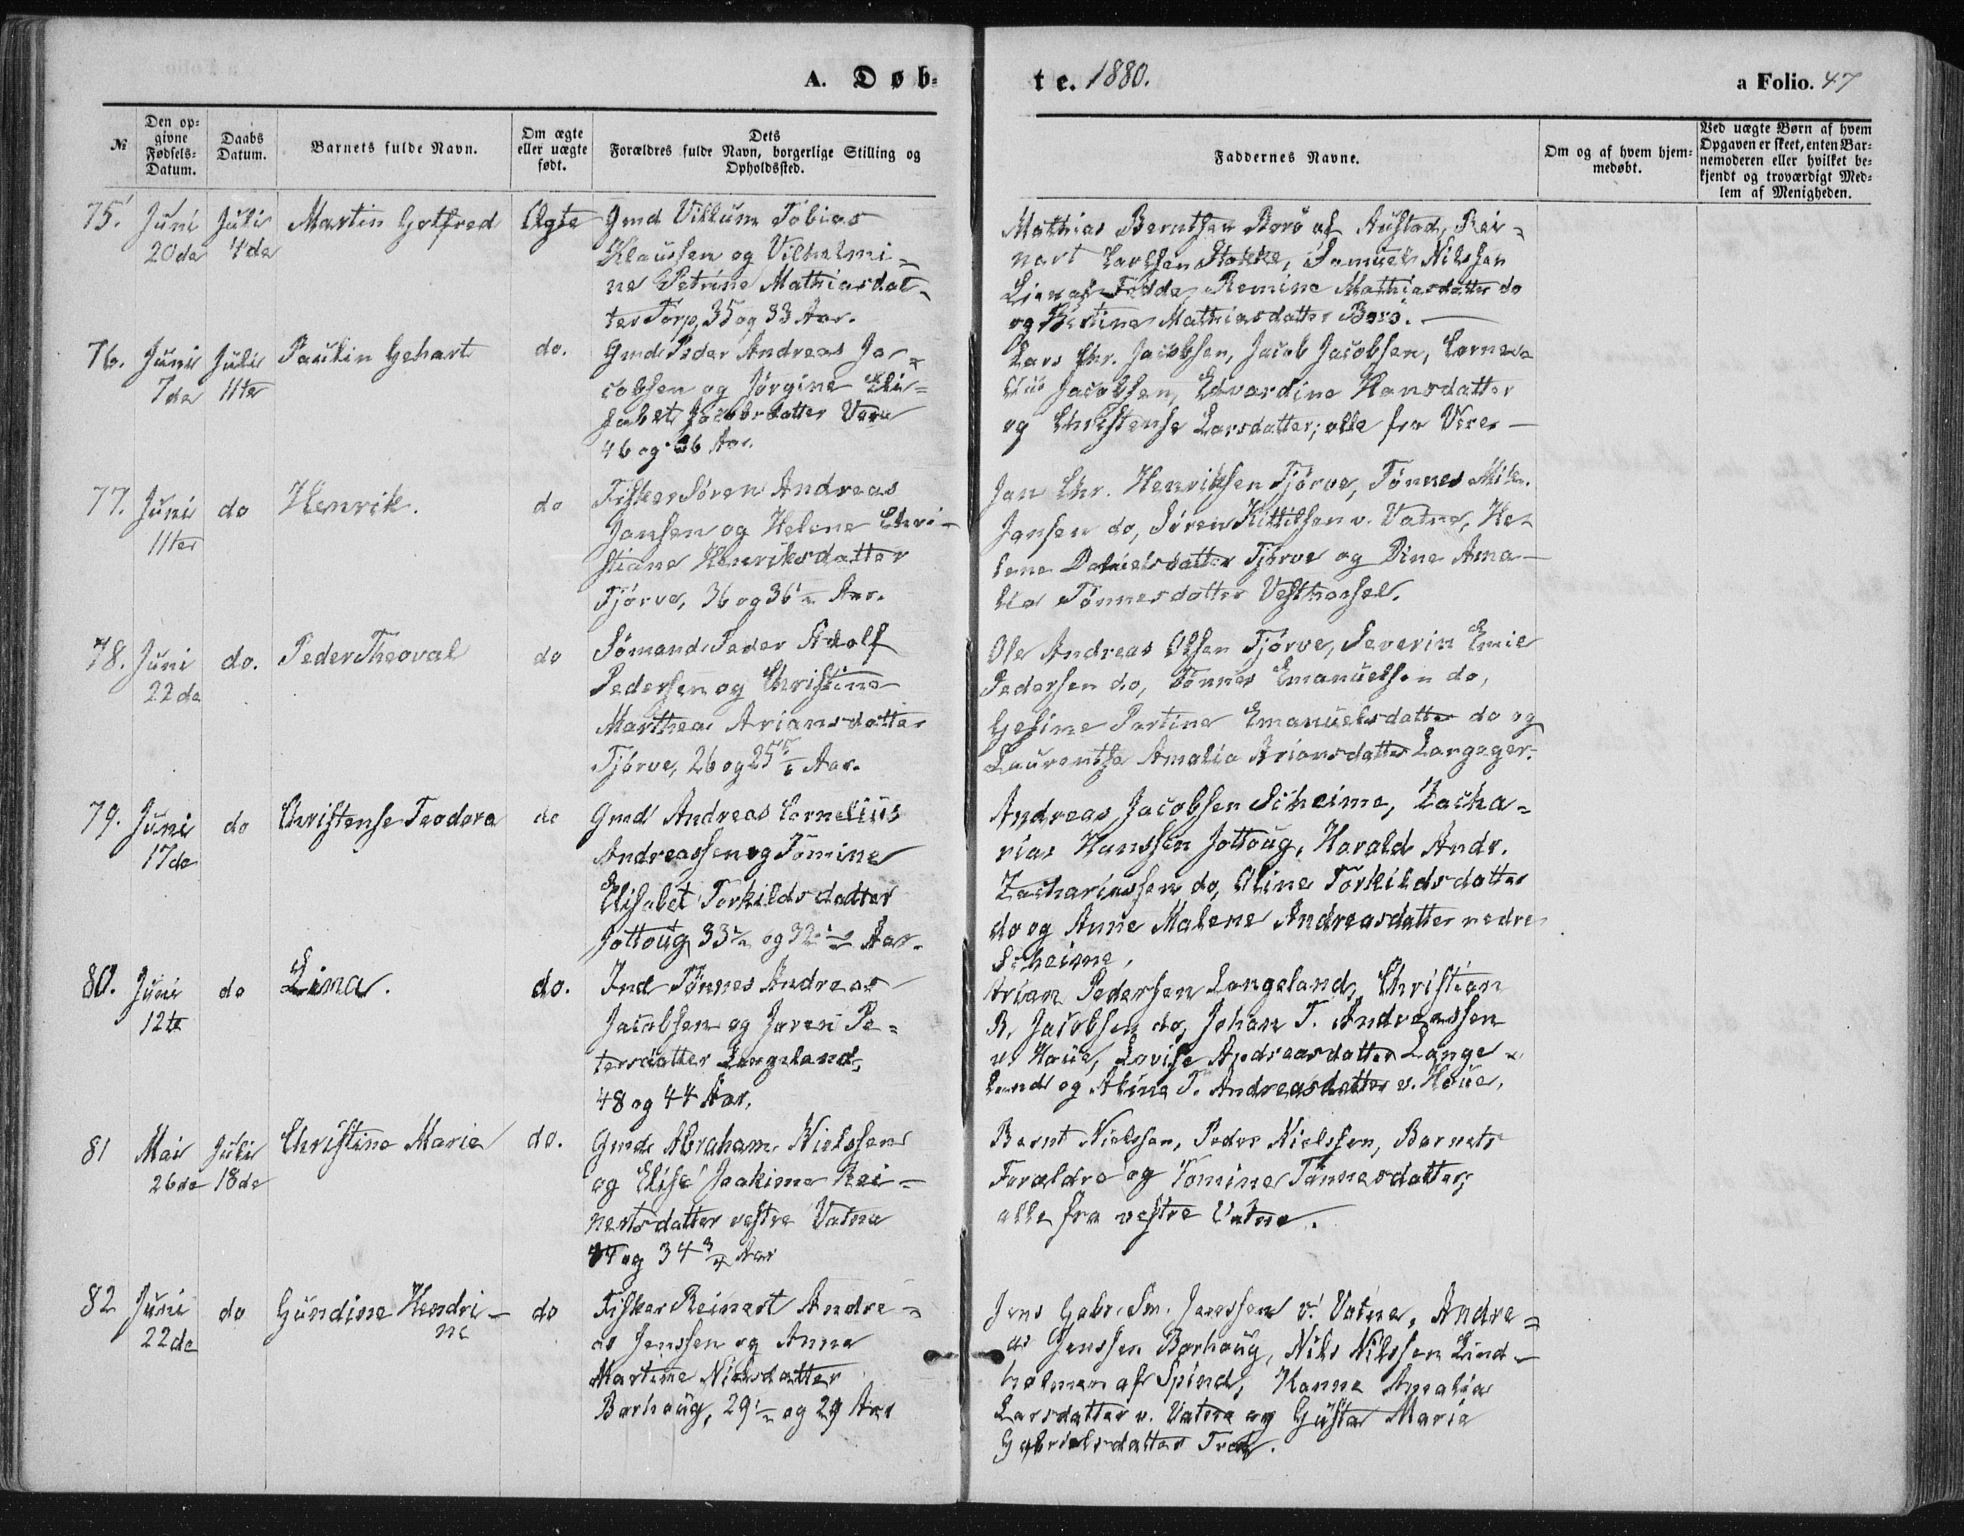 A. Døb-
te. 1880.
a Folio. 47
№
Den op-
givne
Fødsels-
Datum.
Daabs
Datum.
Barnets fulde Navn.
Om ægte
eller uægte
født.
Dets
Forældres fulde Navn, borgerlige Stilling og
Opholdssted.
Faddernes Navne.
Om og af hvem hjem-
medøbt.
Ved uægte Børn af hvem
Opgaven er skeet, enten Bar-
nemoderen eller hvilket be-
kjendt og troværdigt Med-
lem af Menigheden.
75.
Juni
20de
Juli
4de
Martin Gotfred
Ægte
Gmd Villum Tobias
Klaussen og Vilhelmi-
ne Petrine Mathiasdat-
ter Torp, 35 og 33 Aar.
Mathias Berntsen Borø af Austad, Rei-
nart Carlsen Stokke, Samuel Nilssen
Lien af Fedde, Remine Mathiasdatter do
og Bertine Mathiasdatter Borø.
76.
Juni
7de
Juli
11te
Paulin Gehart
do.
Gmd Peder Andreas Ja-
cobsen og Jørgine Eli-
sabet Jacobsdatter Vere
46 og 36 Aar.
Lars Chr. Jacobsen, Jacob Jacobsen, Corne-
lius Jacobsen, Edvardine Hansdatter
og Christense Larsdatter; alle fra Vere
77.
Juni
11te
do
Henrik.
do
Fisker Søren Andreas
Jansen og Helene Chri-
stiane Henriksdatter
Tjørve, 36 og 36 Aar.
Jan Chr. Henriksen Tjørve, Tønnes Mik.
Jansen do, Søren Kittilsen v. Vatne, He-
lene Danielsdatter Tjørve og Dine Ama-
lia Tønnesdatter Vesthassel.
78.
Juni
22de
do.
Peder Theoval
do
Sømand Peder Adolf
Pedersen og Christine
Marthea Ariansdatter
Tjørve, 26 og 25 Aar.
Ole Andreas Olsen Tjørve, Severin Emil
Pedersen do, Tønnes Emanuelsen do,
Gesine Partine Emanuelsdatter do og
Laurentse Amalia Ariansdatter Langeger.
79.
Juni
17de
do
Christense Teodora
do
Gmd Andreas Cornelius
Andreassen og Tomine
Elisabet Torkildsdatter
Jottoug 33 og 32 Aar.
Andreas Jacobsen Skeime, Zacha-
rias Hanssen Jottoug, Harald Andr.
Zachariassen do, Oline Torkildsdatter
do og Anne Malene Andreasdatter nedre
Skeime.
80.
Juni
12te
do
Lina.
do.
Ind Tønnes Andreas
Jacobsen og Joren Pe-
tersdatter Langeland,
48 og 44 Aar.
Arian Pedersen Langeland, Christian
B. Jacobsen do, Johan T. Andreassen
v. Houe, Lovise Andreasdatter Lange-
land og Aline T. Andreasdatter v. Houe.
81
Mai
26de
Juli
18de
Christine Marie
do.
Gmd Abraham Nielssen
og Elise Joakime Rei-
nertsdatter vestre Vatne
og 34 3/4 Aar
Bernt Nielssen, Peder Nielssen, Barnets
Forældre og Tomine Tønnesdatter;
alle fra vestre Vatne.
82
Juni
22de
do
Gundine Hendri-
ne
do
Fisker Reinert Andre-
as Jenssen og Anne
Martine Nilsdatter
Borhaug, 29 og 29 Aar
Jens Gabr. Sm. Jenssen v. Vatne, Andre-
as Jenssen Borhaug, Nils Nilssen Lind-
holmen af Spind, Hanne Amalia
Larsdatter v. Vatne og Gusta Marie
Gabrielsdatter